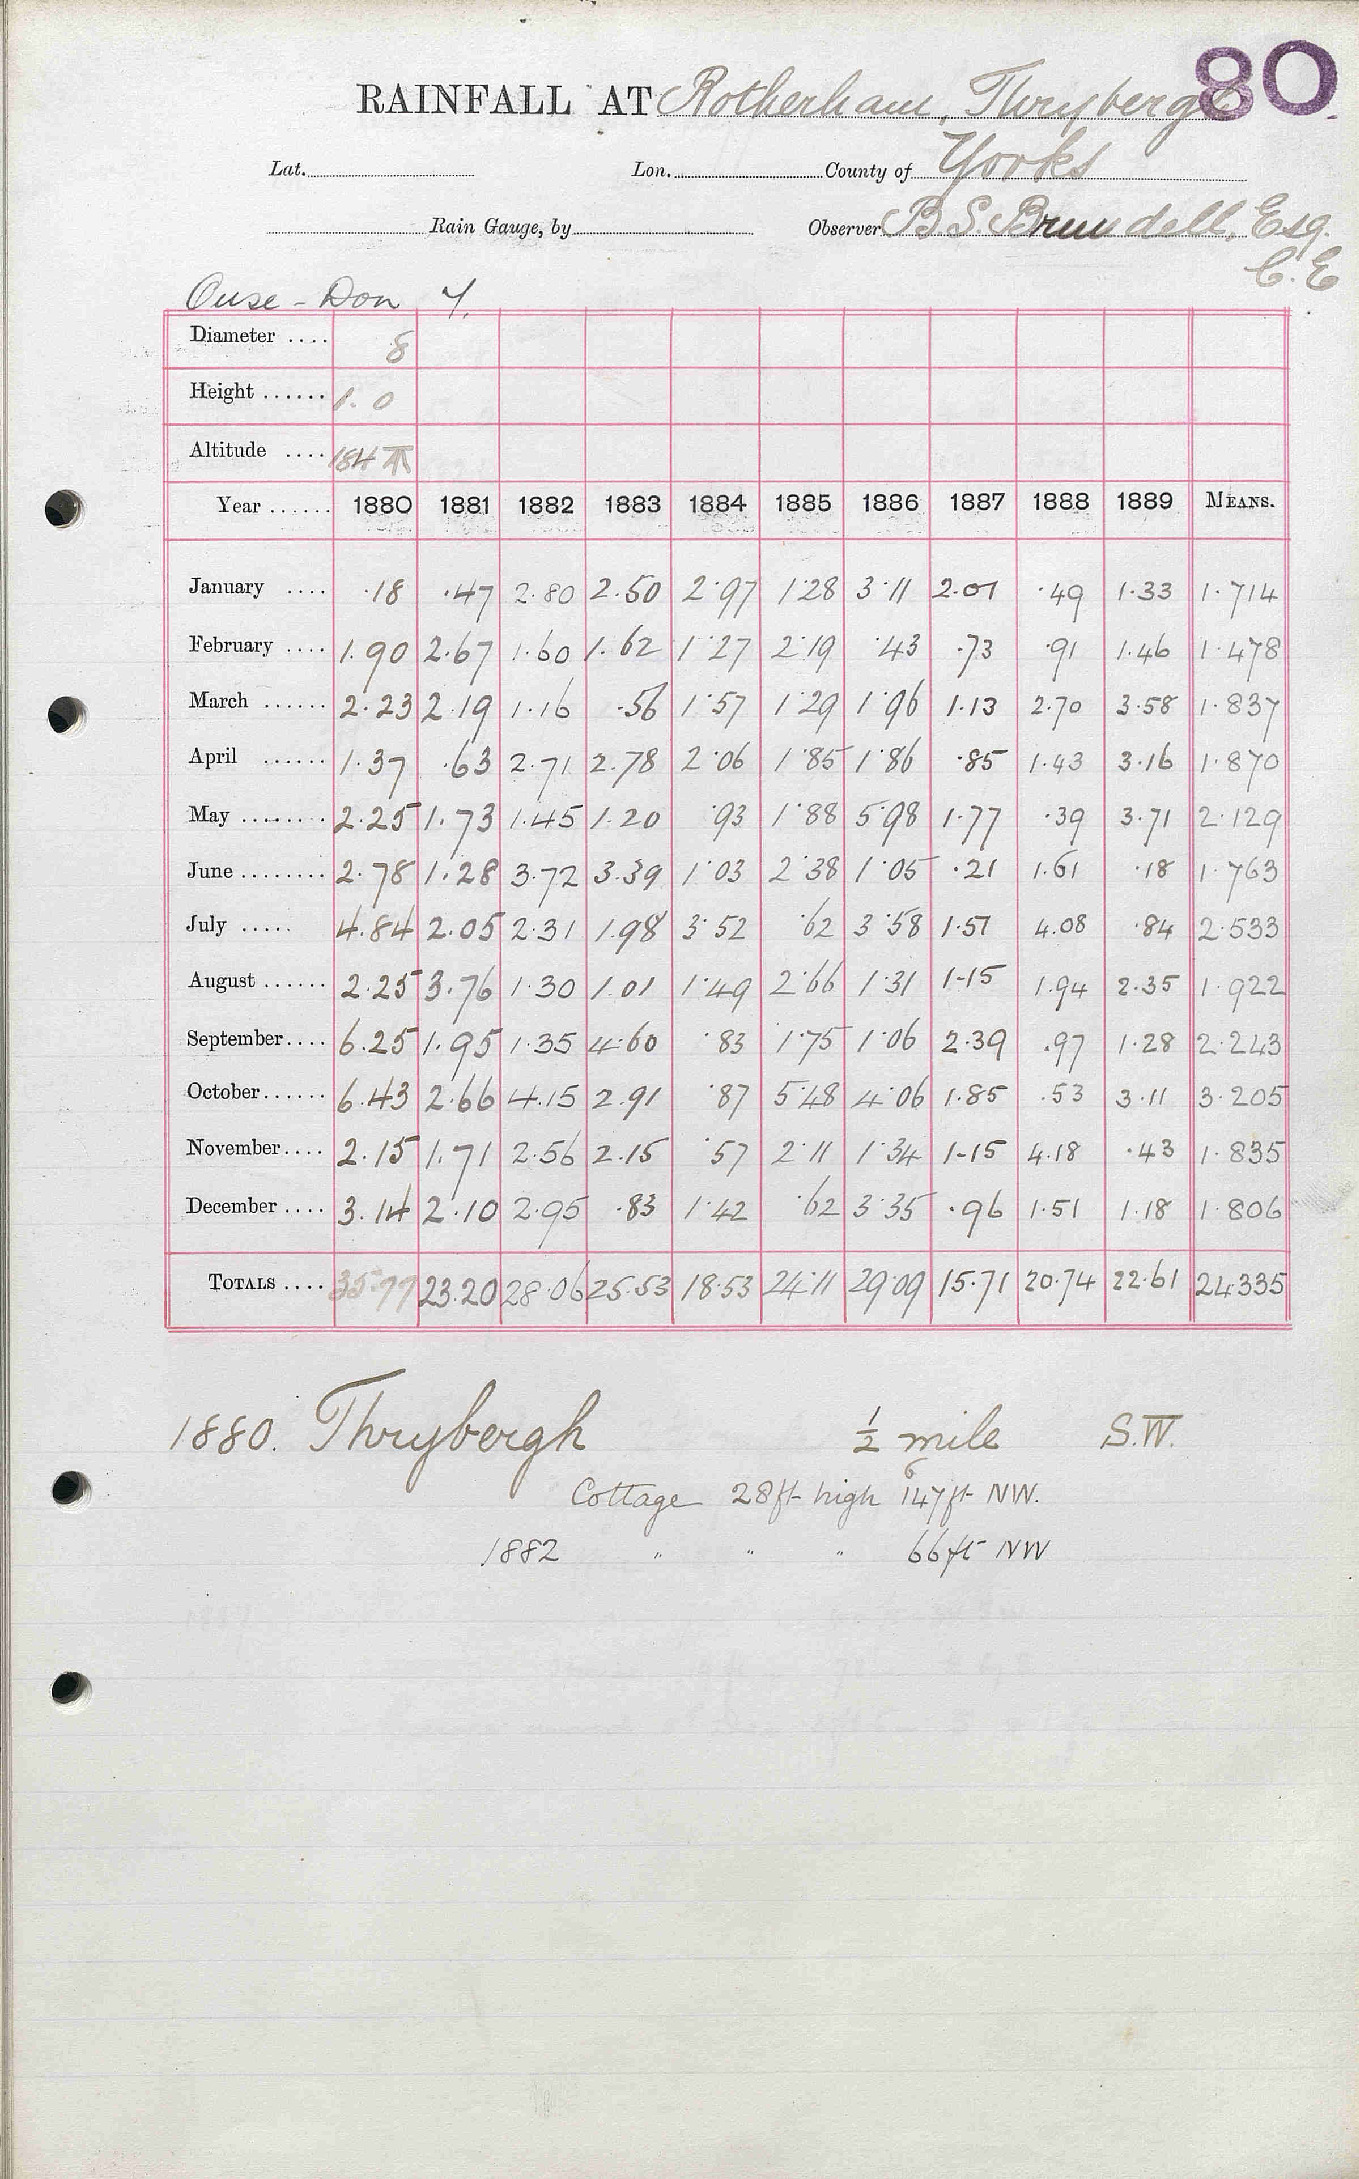 80
RAINFALL AT Rotherham, Thrybergh
Lat. Lon. County of Yorks
Rain Gauge, by Observer B. S. Brundell, Esq.
C. E
Ouse - Don Y.
Diameter .... 8
Height ...... 1.0
Altitude .... 184 T
Year ...... 1880 1881 1882 1883 1884 1885 1886 1887 1888 1889 MEANS.
January .... .18 .47 2.80 2.50 2.97 1.28 3.11 2.01 .49 1.33 1.714
February .... 1.90 2.67 1.60 1.62 1.27 2.19 .43 .73 .91 1.46 1.478
March ...... 2.23 2.19 1.16 .56 1.57 1.29 1.96 1.13 2.70 3.58 1.837
April ...... 1.37 .63 2.71 2.78 2.06 1.85 1.86 .85 1.43 3.16 1.870
May ........ 2.25 1.73 1.45 1.20 .93 1.88 5.98 1.77 .39 3.71 2.129
June ........ 2.78 1.28 3.72 3.39 1.03 2.38 1.05 .21 1.61 .18 1.763
July ..... 4.84 2.05 2.31 1.98 3.52 .62 3.58 1.51 4.08 .84 2.533
August ...... 2.25 3.76 1.30 1.01 1.49 2.66 1.31 1.15 1.94 2.35 1.922
September.... 6.25 1.95 1.35 4.60 .83 1.75 1.06 2.39 .97 1.28 2.243
October...... 6.43 2.66 4.15 2.91 .87 5.48 4.06 1.85 .53 3.11 3.205
November.... 2.15 1.71 2.56 2.15 .57 2.11 1.34 1.15 4.18 .43 1.835
December .... 3.14 2.10 2.95 .83 1.42 .62 3.35 .96 1.51 1.18 1.806
TOTALS .... 35.77 23.20 28.06 25.53 18.53 24.11 29.09 15.71 20.74 22.61 24.335
1880. Thrybergh ½ mile S.W.
Cottage 28ft high 147ft NW.
1882 " " " 66ft NW